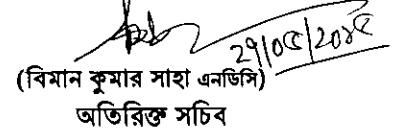 ২৭/০৫/২০২৫
(বিমান কুমার সাহা এনডিসি)
অতিরিক্ত সচিব